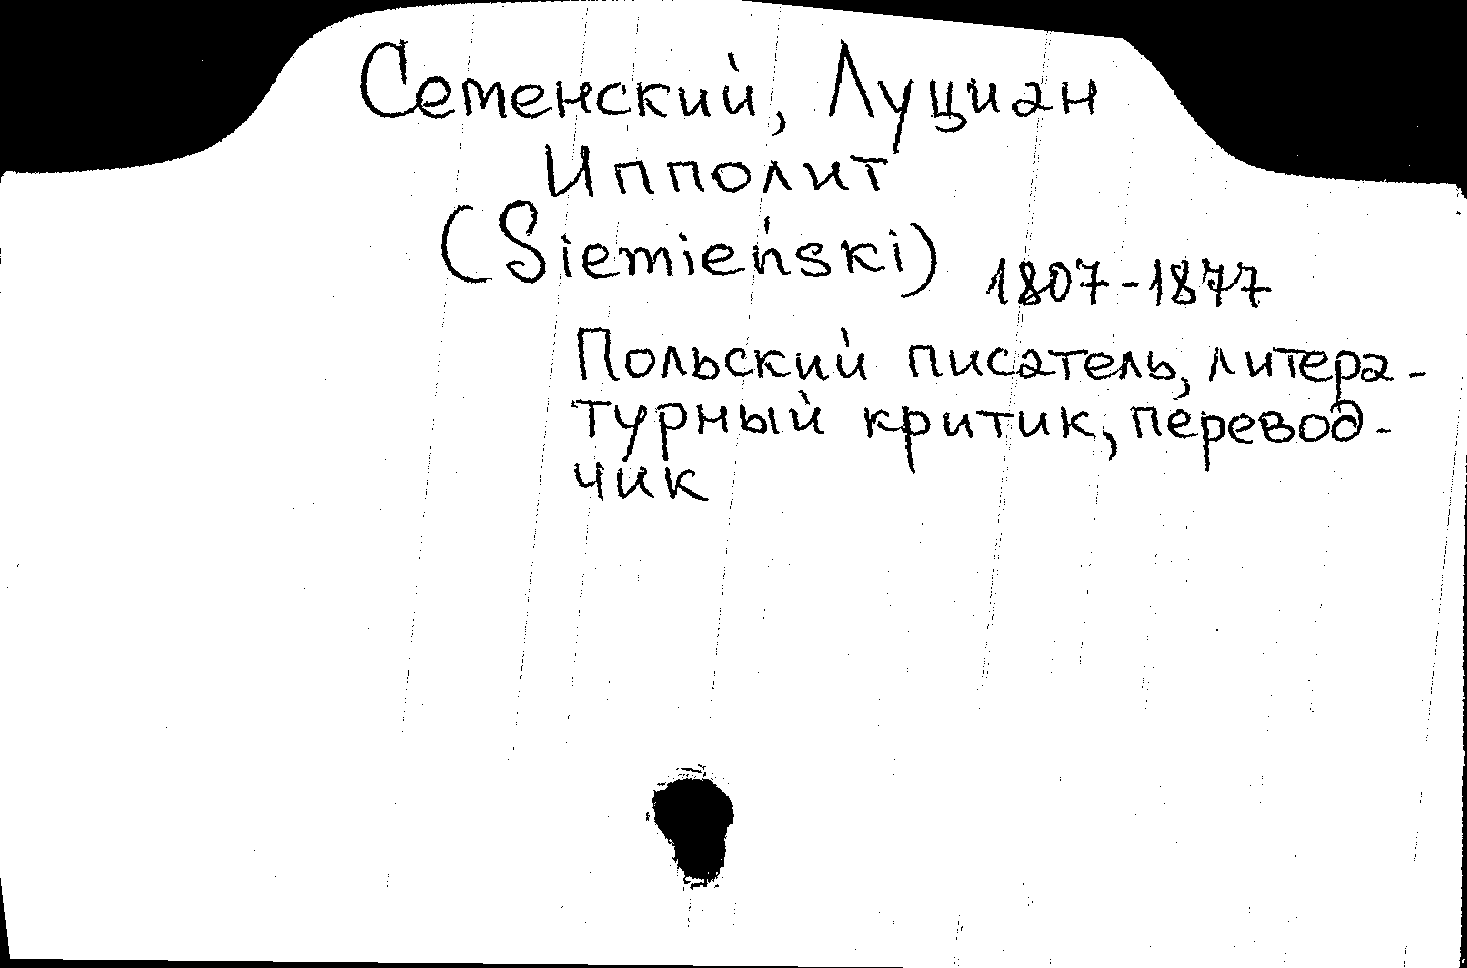 Семенский, Луциан
Ипполит
(Siemieński) 1807-1877
Польский писатель, литера-
турный критик, перевод-
чик